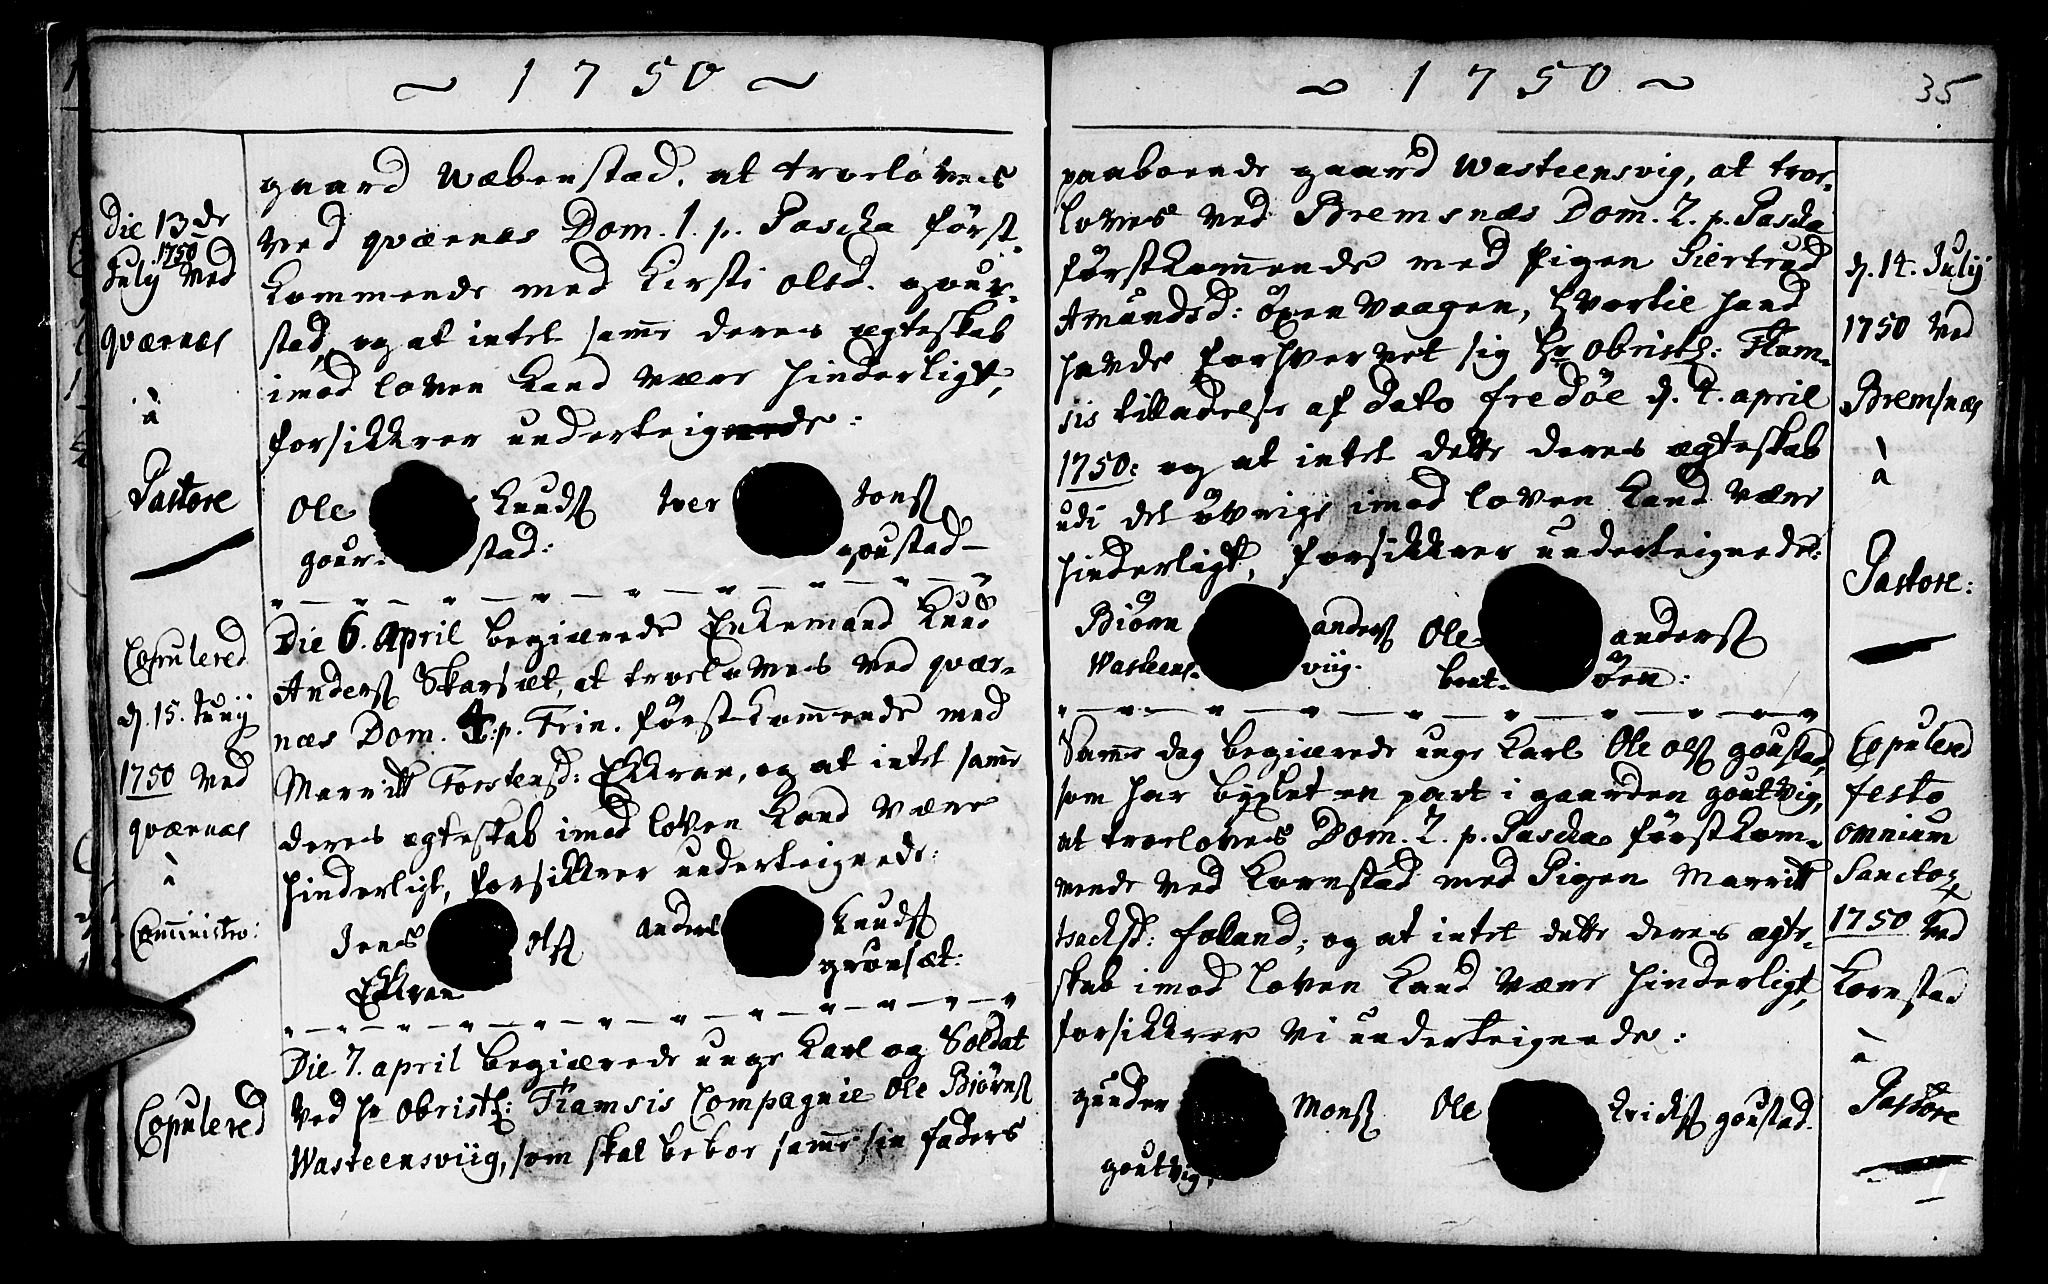 ~ 1750 ~
Die 13de
1750
July Ved
qværnæs
à
Pastore
Copulered
d. 15. Junij
1750 Ved
qværnæs
à
Comministro:
Copulered
gaard Wæbenstad, at troeloves
Ved qværnæs Dom. 1. p. Pascha først-
kommende med Kirsti Olsd. gour-
stad, og at intet samme deres ægteskab
imod loven kand være hinderligt,
forsikkrer underteignede:
Ole Knuds. Iver Jons.
gour- stad: goustad-
Die 6. April begiærede Enkemand Knud
Anders. Skarsæt, at troeloves Ved qvær-
næs Dom. 4. p. Trin. førstkommende med
Marritt Torstensd: Ekkran, og at intet samme
deres ægteskab imod loven kand være
hinderligt, forsikkrer underteignede:
Jens Ols. anders Knuds.
Ekkran grønsæt:
Die 7. april begiærede unge Karl og Soldat
Ved hr Obristl: Flamsis Compagnie Ole Biørns.
Wasteensviig, som skal beboe samme sin faders
~ 1750 ~
35
paaboende gaard Wasteensvig, at troe-
loves Ved Bremsnæs Dom. 2. p. Pascha
førstkommende med Pigen Siertrud
Amundsd: Øxenvaagen, hvortil hand
havde forhvervet sig Hr Obristl: Flam-
sis tilladelse af Dato fredøe d. 4. april
1750: og at intet dette deres ægteskab
udi det øvrige imod loven kand være
hinderligt, forsikkrer underteignede:
Biørn anders. Ole anders.
Wasteens- viig. øen:
Samme dag begiærede unge Karl Ole Ols. goustad,
som har byxlet en part i gaarden goutvig,
at troeloves Dom. 2. p. Pascha førstkom-
mende Ved Kornstad med Pigen Marritt
Isachsd: foland; og at intet dette deres ægte-
skab imod loven kand være hinderligt,
forsikkrer Vi underteignede:
gunder Mons. Ole Erichs. goustad.
goutvig,
d. 14. Julij
1750 Ved
Bremsnæs
à
Pastore:
Copulered
festo
omnium
Sanctor
1750 Ved
Kornstad
à
Pastore